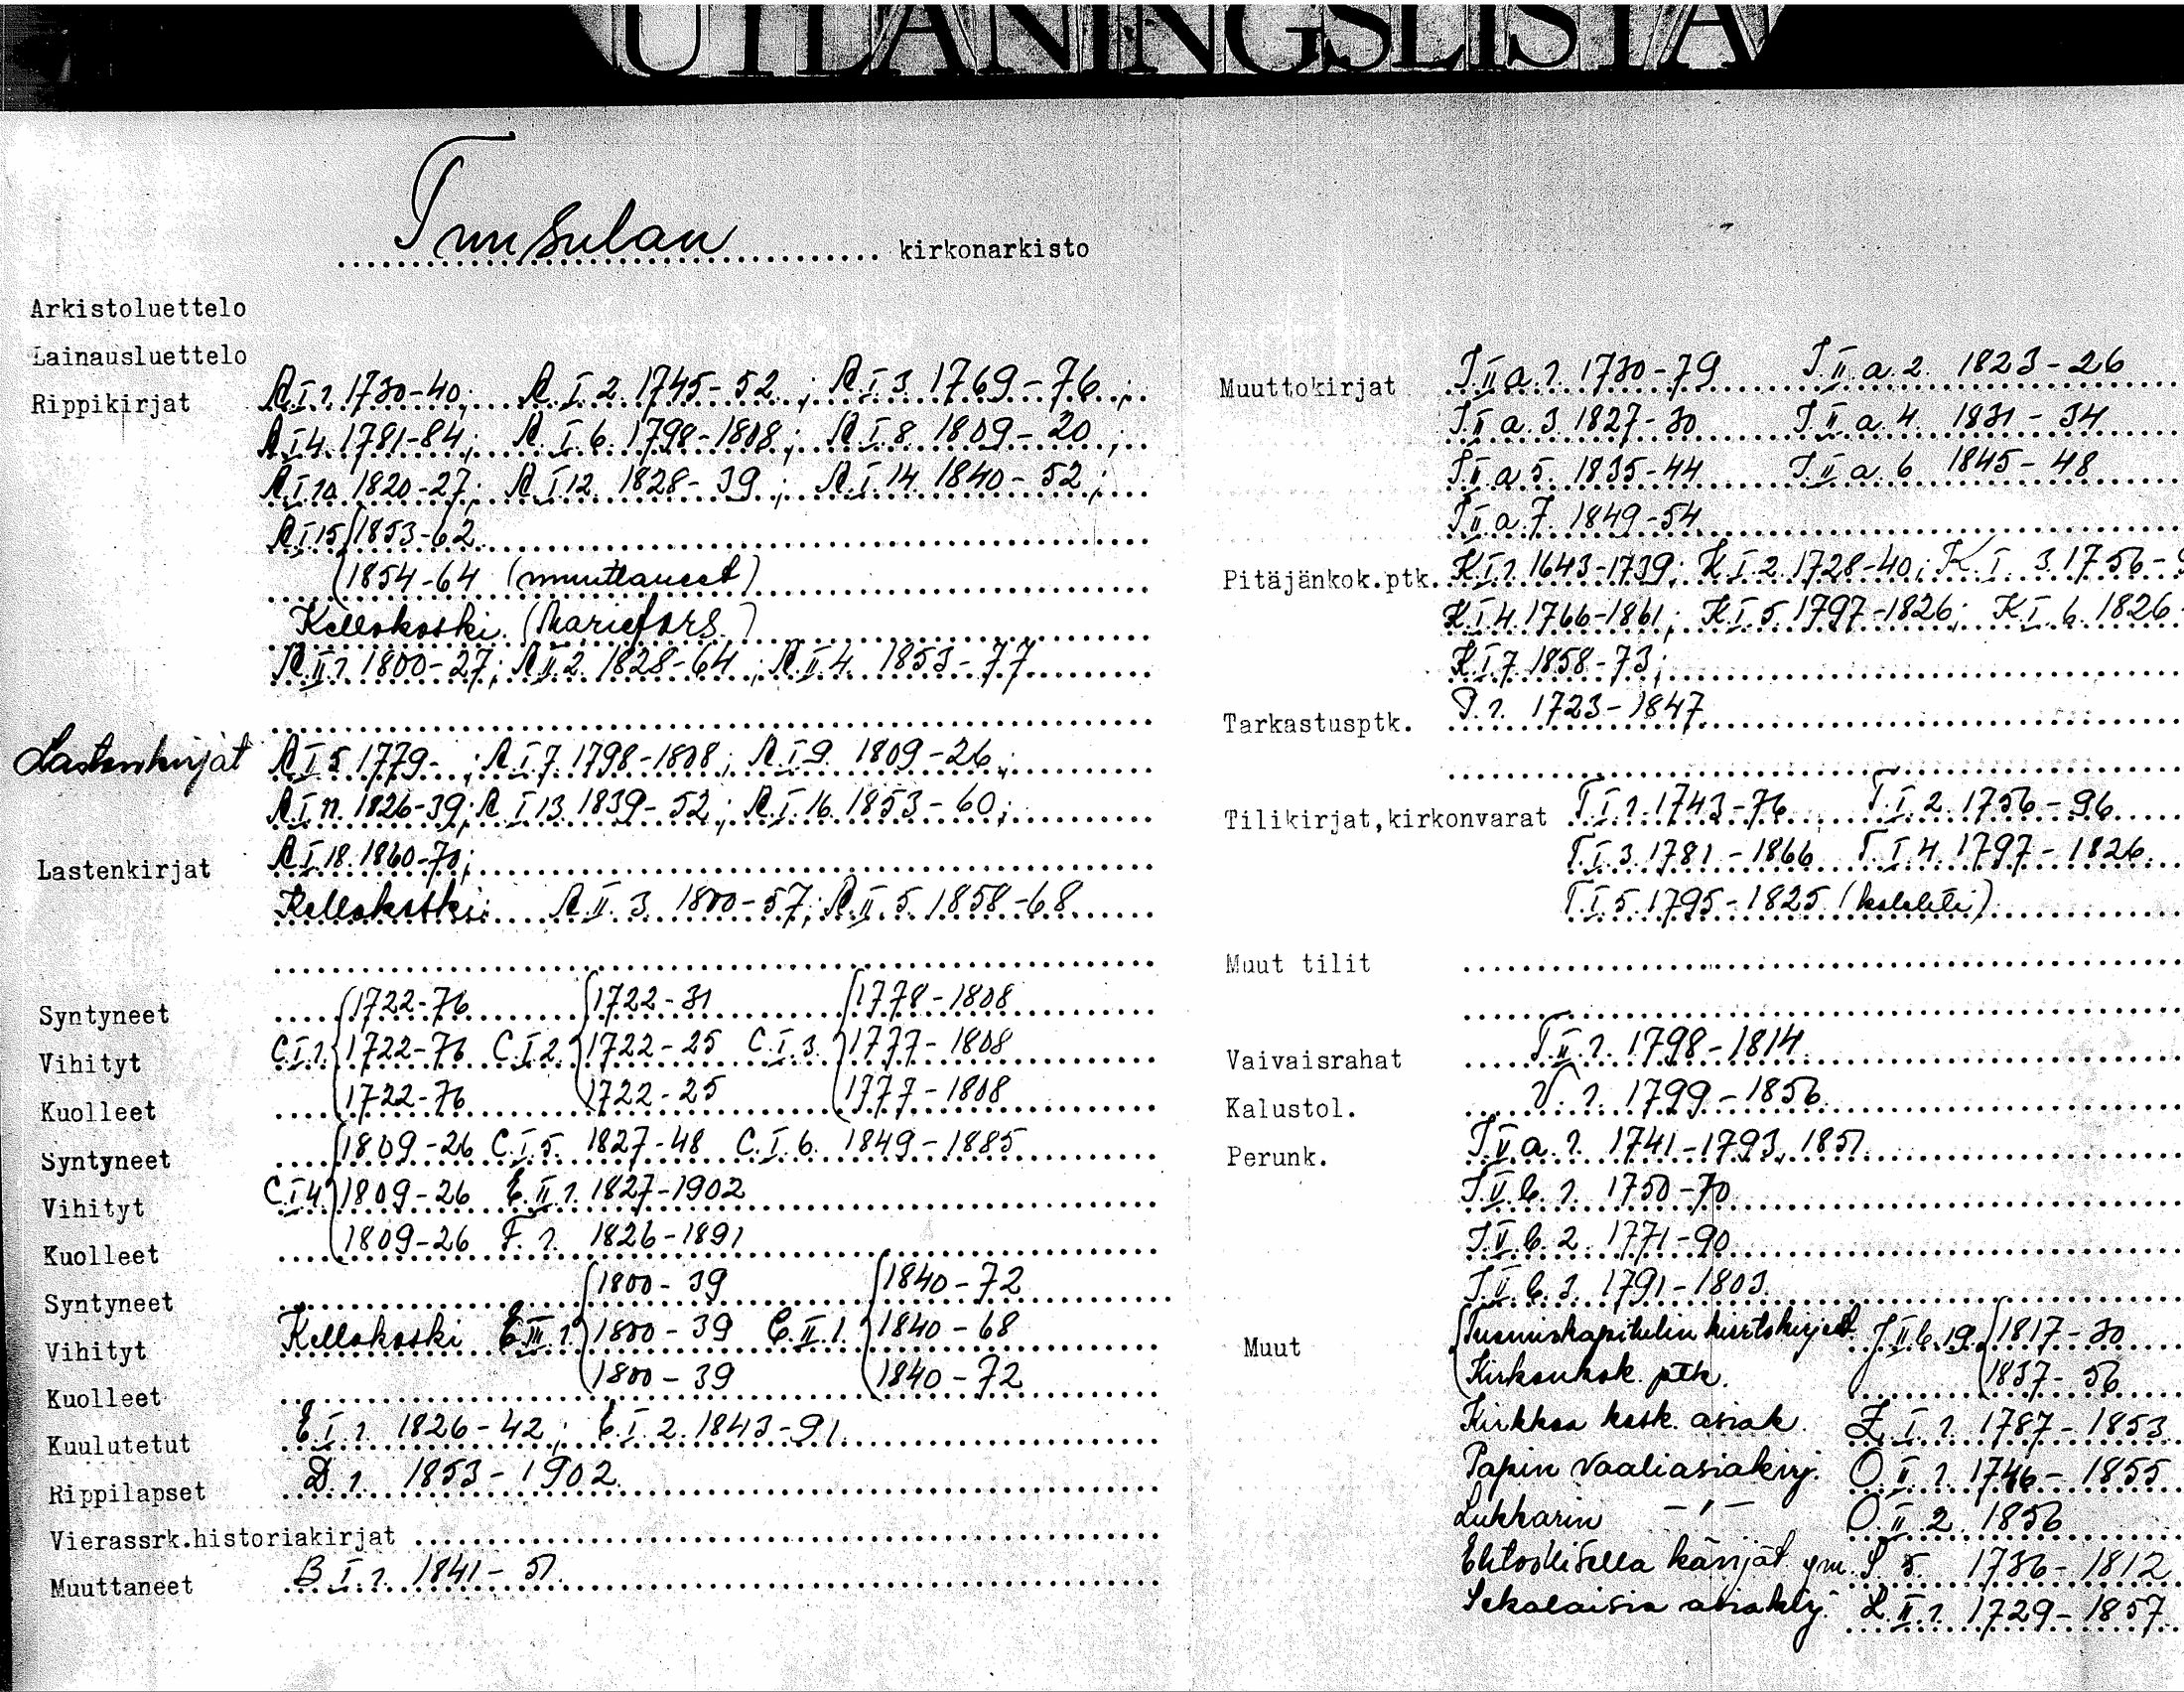 UTLÅNINGSLISTA
Tuusulan kirkonarkisto
Arkistoluettelo
Lainausluettelo
Rippikirjat A.I.1. 1730-40; A.I.2. 1745-52; A.I.3. 1769-76;
A.I.4. 1781-84; A.I.6. 1798-1808; A.I.8. 1809-20;
A.I.10. 1820-27; A.I.12. 1828-39; A.I.14. 1840-52;
A.I.15 1853-62
1854-64 (muuttaneet)
Kellokoski (Mariefors)
A.II.1. 1800-27; A.II.2. 1828-64; A.II.4. 1853-77
Lastenkirjat A.I.5. 1779- ; A.I.7. 1798-1808; A.I.9. 1809-26;
A.I.11. 1826-39; A.I.13. 1839-52; A.I.16. 1853-60;
Lastenkirjat A.I.18. 1860-70;
Kellokoski: A.II.3. 1800-57; A.II.5. 1858-68
Syntyneet 1722-76 1722-31 1778-1808
Vihityt C.I.1. 1722-76 C.I.2. 1722-25 C.I.3. 1777-1808
Kuolleet 1722-76 1722-25 1777-1808
Syntyneet 1809-26 C.I.5. 1827-48 C.I.6. 1849-1885
Vihityt C.I.4. 1809-26 E.II.1. 1827-1902
Kuolleet 1809-26 F.1. 1826-1891
Syntyneet 1800-39 1840-72
Vihityt Kellokoski E.III.1. 1800-39 C.II.1. 1840-68
Kuolleet 1800-39 1840-72
Kuulutetut E.I.1. 1826-42; E.I.2. 1843-91
Rippilapset D.1. 1853-1902
Vierassrk.historiakirjat
Muuttaneet B.I.1. 1841-51
Muuttokirjat J.II.a.1. 1730-79 J.II.a.2. 1823-26
J.II.a.3. 1827-30 J.II.a.4. 1831-34
J.II.a.5. 1835-44 J.II.a.6. 1845-48
J.II.a.7. 1849-54
Pitäjänkok.ptk. K.I.1. 1643-1739; K.I.2. 1728-40; K.I.3. 1756-
K.I.4. 1766-1861; K.I.5. 1797-1826; K.I.6. 1826-
K.I.7. 1858-73;
Tarkastusptk. P.1. 1723-1847
Tilikirjat,kirkonvarat T.I.1. 1743-76 T.I.2. 1756-96
T.I.3. 1781-1866 T.I.4. 1797-1826
T.I.5. 1795-1825 (kolehti)
Muut tilit
Vaivaisrahat T.II.1. 1798-1814
Kalustol. V.1. 1799-1856
Perunk. J.V.a.1. 1741-1793, 1851
J.V.b.1. 1750-70
J.V.b.2. 1771-90
J.V.b.3. 1791-1803
Muut Tuomiokapitulin kiertokirjeet J.II.b.19. 1817-30
Kirkonkok. ptk. 1837-56
Kirkkoa kosk. asiak. L.I.1. 1787-1853
Papin vaaliasiakirj. O.II.1. 1746-1855
Lukkarin -"- O.II.2. 1856
Ehtoollisella kävijät ym. S.5. 1736-1812
Sekalaisia asiakirj. L.II.1. 1729-1857